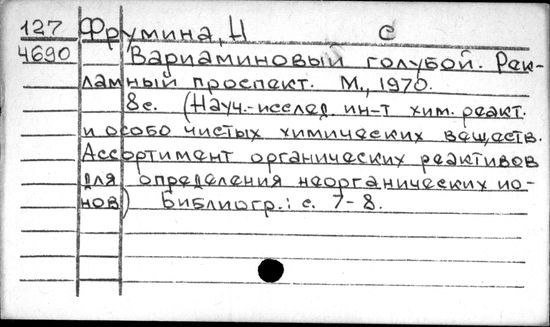 127 Фрумина, Н С
4690 Вариаминовый голубой. Рек-
ламный проспект. М., 1970.
8 с. (Науч.-исслед. ин-т хим. реакт.
и особо чистых химических веществ.
Ассортимент органических реактивов
для определения неорганических ио-
нов) Библиогр.: с. 7-8.